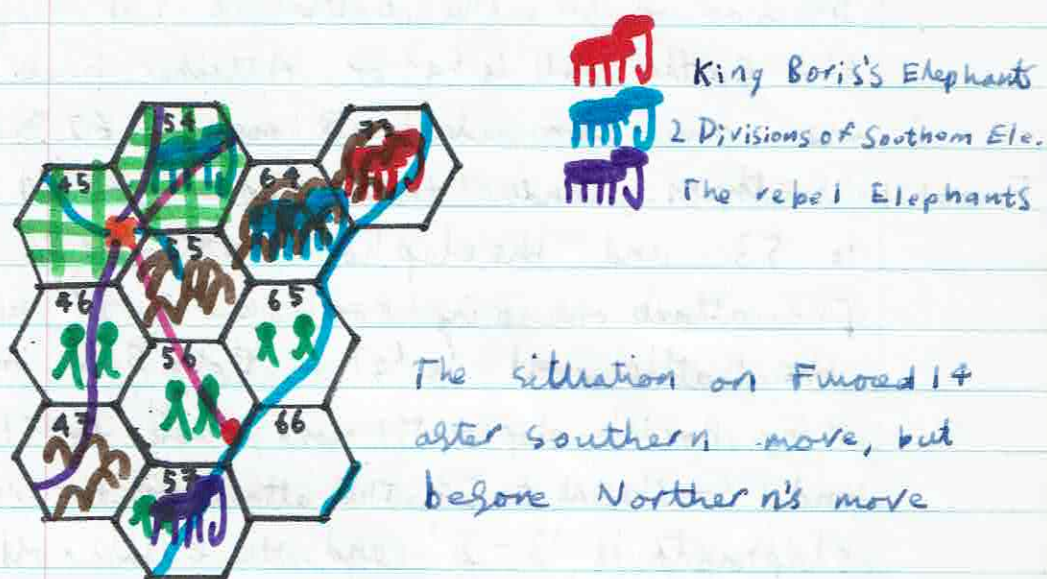 King Boris's Elephants
2 Divisions of Southern Ele.
The rebel Elephants
54
45
64
55
46
65
56
47
66
57
The situation on 14
after southern move, but
before Northern's move